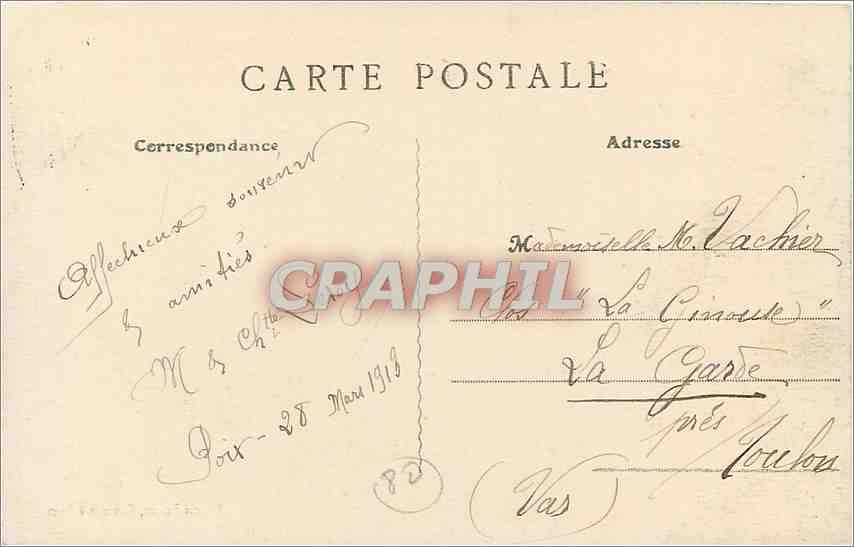 CARTE POSTALE
Correspondance
Adresse
Affectueux souvenir
& amitiés.
M & Chtte
Poix - 28 Mars 1913
CRAPHIL
Mademoiselle M. Vachier
Clos "La Ginouse"
La Garde
près Toulon
(Var)
80